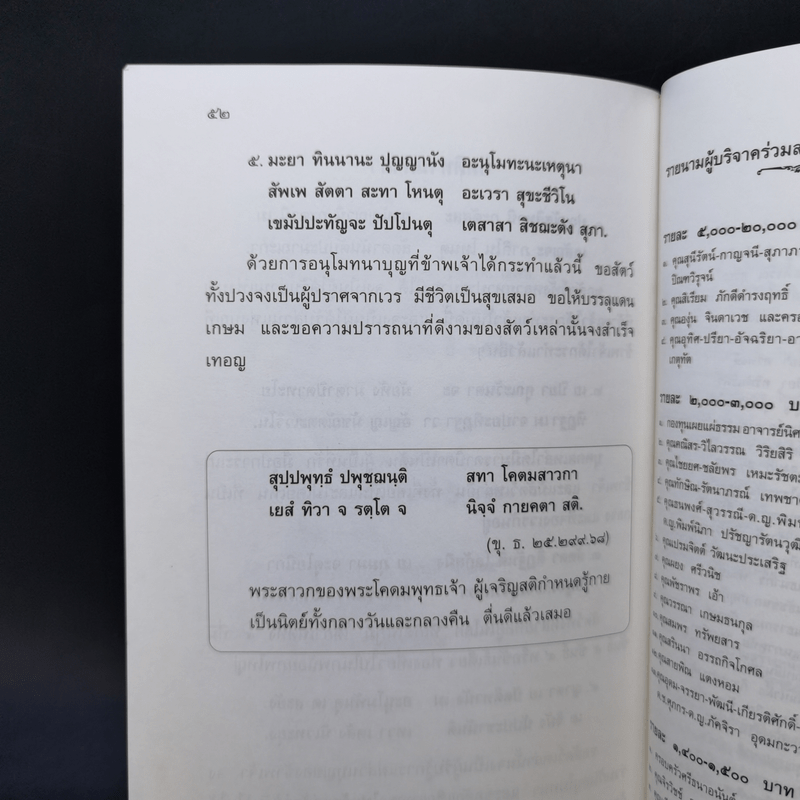 ๕๒
๕. มะยา ทินนานะ ปุญญานัง อะนุโมทะนะเหตุนา
สัพเพ สัตตา สะทา โหนตุ อะเวรา สุขะชีวิโน
เขมัปปะทัญจะ ปัปโปนตุ เตสาสา สิชฌะตัง สุภา.
ด้วยการอนุโมทนาบุญที่ข้าพเจ้าได้กระทำแล้วนี้ ขอสัตว์
ทั้งปวงจงเป็นผู้ปราศจากเวร มีชีวิตเป็นสุขเสมอ ขอให้บรรลุแดน
เกษม และขอความปรารถนาที่ดีงามของสัตว์เหล่านั้นจงสำเร็จ
เทอญ
สุปฺปพุทฺธํ ปพุชฺฌนฺติ สทา โคตมสาวกา
เยสํ ทิวา จ รตฺโต จ นิจฺจํ กายคตา สติ.
(ขุ. ธ. ๒๕.๒๙๙.๖๘)
พระสาวกของพระโคดมพุทธเจ้า ผู้เจริญสติกำหนดรู้กาย
เป็นนิตย์ทั้งกลางวันและกลางคืน ตื่นดีแล้วเสมอ
รายนามผู้บริจาคร่วมส
รายละ ๕,๐๐๐-๒๐,๐๐๐
๑. คุณสุนีรัตน์-กาญจนี-สุภาภ
บิณฑวิรุจน์
๒. คุณสิเรียม ภักดีดำรงฤทธิ์
๓. คุณองุ่น จินตาเวช และครอ
๔. คุณอุทิศ-ปรียา-อัจฉริยา-อา
เกตุทัต
รายละ ๒,๐๐๐-๓,๐๐๐ บ
๑. กองทุนเผยแผ่ธรรม อาจารย์นิศ
๒. คุณคณิสร-วิไลวรรณ วิริยสิริ
๓. คุณไชยยศ-ชลัยพร เหมะรัชตะ
๔. คุณทักษิณ-รัตนาภรณ์ เทพชา
๕. คุณธนพงศ์-สุวรรณี-ด.ญ.พิมพ
ด.ญ.พิมพ์นิภา ปรัชญารัตนวุฒิ
๖. คุณเปรมจิตต์ วัฒนะประเสริฐ
๗. คุณผยง ศรีวนิช
๘. คุณพัชราพร เอ้า
๙. คุณวรรณา เกษมธนกุล
คุณสมพร ทรัพยสาร
คุณสรินนา อรรถกิจโกศล
คุณสายพิณ แดงหอม
คุณอุดม-จรรยา-พัฒนี-เกียรติศักดิ์-
ด.ช.ศุภกร-ด.ญ.ภัคจิรา อุดมกะวา
รายละ ๑,๔๐๐-๑,๕๐๐ บาท
๑. ครอบครัวศรีธนาอนันต์